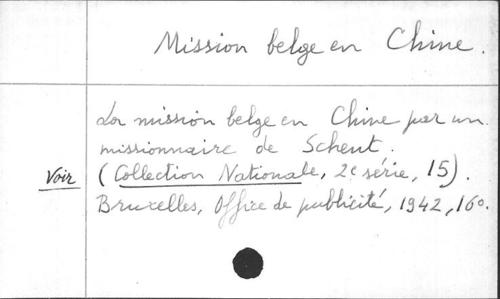 Mission belge en Chine.
La mission belge en Chine par un
missionnaire de Scheut.
Voir (Collection Nationale, 2e série, 15).
Bruxelles, Office de publicité, 1942, 16°.